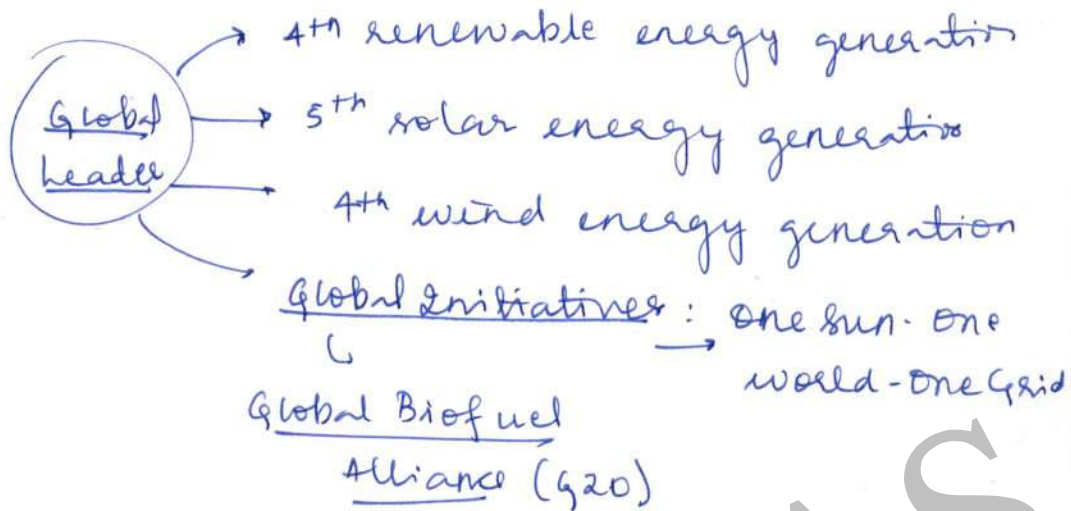 Global
Leader
4th renewable energy generation
5th solar energy generation
4th wind energy generation
Global Initiatives : One Sun. One
world - One Grid
Global Biofuel
Alliance (G20)